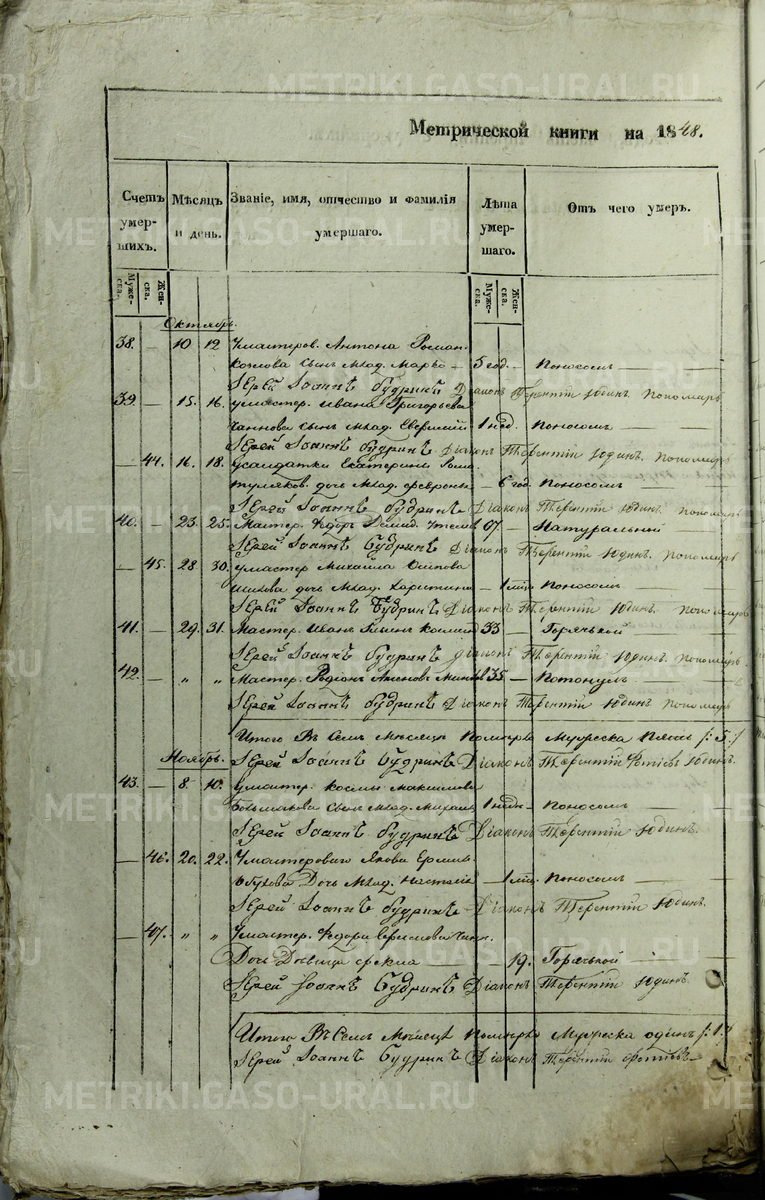 METRIKI.GASO-URAL.RU
Метрической книги на 1848.
Счетъ умерших​ъ. Мѣсяцъ и день. Званіе, имя, отчество и фамилія умершаго. Лѣта умершаго. Отъ чего умеръ.
Мужеска. Женска. Мужеска. Женска.
Октябрь.
38. — 10 12 Умастеров. Антона Роман.
Козлова сынъ млад. Марко — 5 год. — Поносомъ —
Іерей Іоаннъ Будринъ Діаконъ Терентій Юдинъ. Пономарь
39. — 15. 16. Умастер. Ивана Григорьева
сынъ млад. 1 нед. — Поносомъ —
Іерей Іоаннъ Будринъ Діаконъ Терентій Юдинъ. Пономарь
— 44. 16. 18. Усолдатки Екатерины
дочь млад. — 6 год. Поносомъ
Іерей Іоаннъ Будринъ Діаконъ Терентій Юдинъ. Пономарь
40. — 23. 25. Мастер. Федоръ Демид. — Натуральной
Іерей Іоаннъ Будринъ Діаконъ Терентій Юдинъ. Пономарь
— 45. 28 30. Умастер Михаила Осипова
дочь млад. Харитина — 1 Поносомъ —
Іерей Іоаннъ Будринъ Діаконъ Терентій Юдинъ. Пономарь
41. — 29. 31. Мастер. Иванъ 33 — Горячькой
Іерей Іоаннъ Будринъ Діаконъ Терентій Юдинъ. Пономарь
42. — „ „ Мастер. 35 — Потонулъ —
Іерей Іоаннъ Будринъ Діаконъ Терентій Юдинъ Пономарь
Итого Въ Семъ Мѣсяцѣ Померло Мужеска Пять /: 5 :/
Ноябрь. Іерей Іоаннъ Будринъ Діаконъ Терентій Фотіевъ Юдинъ.
43. — 8. 10. Умастер. Космы Максимова
Большакова сынъ млад. Михаилъ 1 нед. — Поносомъ —
Іерей Іоаннъ Будринъ Діаконъ Терентій Юдинъ.
— 46. 20. 22. Умастероваго Якова
Дочь млад. — 1 Поносомъ —
Іерей Іоаннъ Будринъ Діаконъ Терентій Юдинъ.
— 47. „ „ Умастер. Федора
Дочь Девица — 19. Горячькой —
Іерей Іоаннъ Будринъ Діаконъ Терентій Юдинъ
Итого Въ Семъ Мѣсецѣ Померло Мужеска одинъ /: 1 :/
Іерей Іоаннъ Будринъ Діаконъ Терентій Фотіевъ